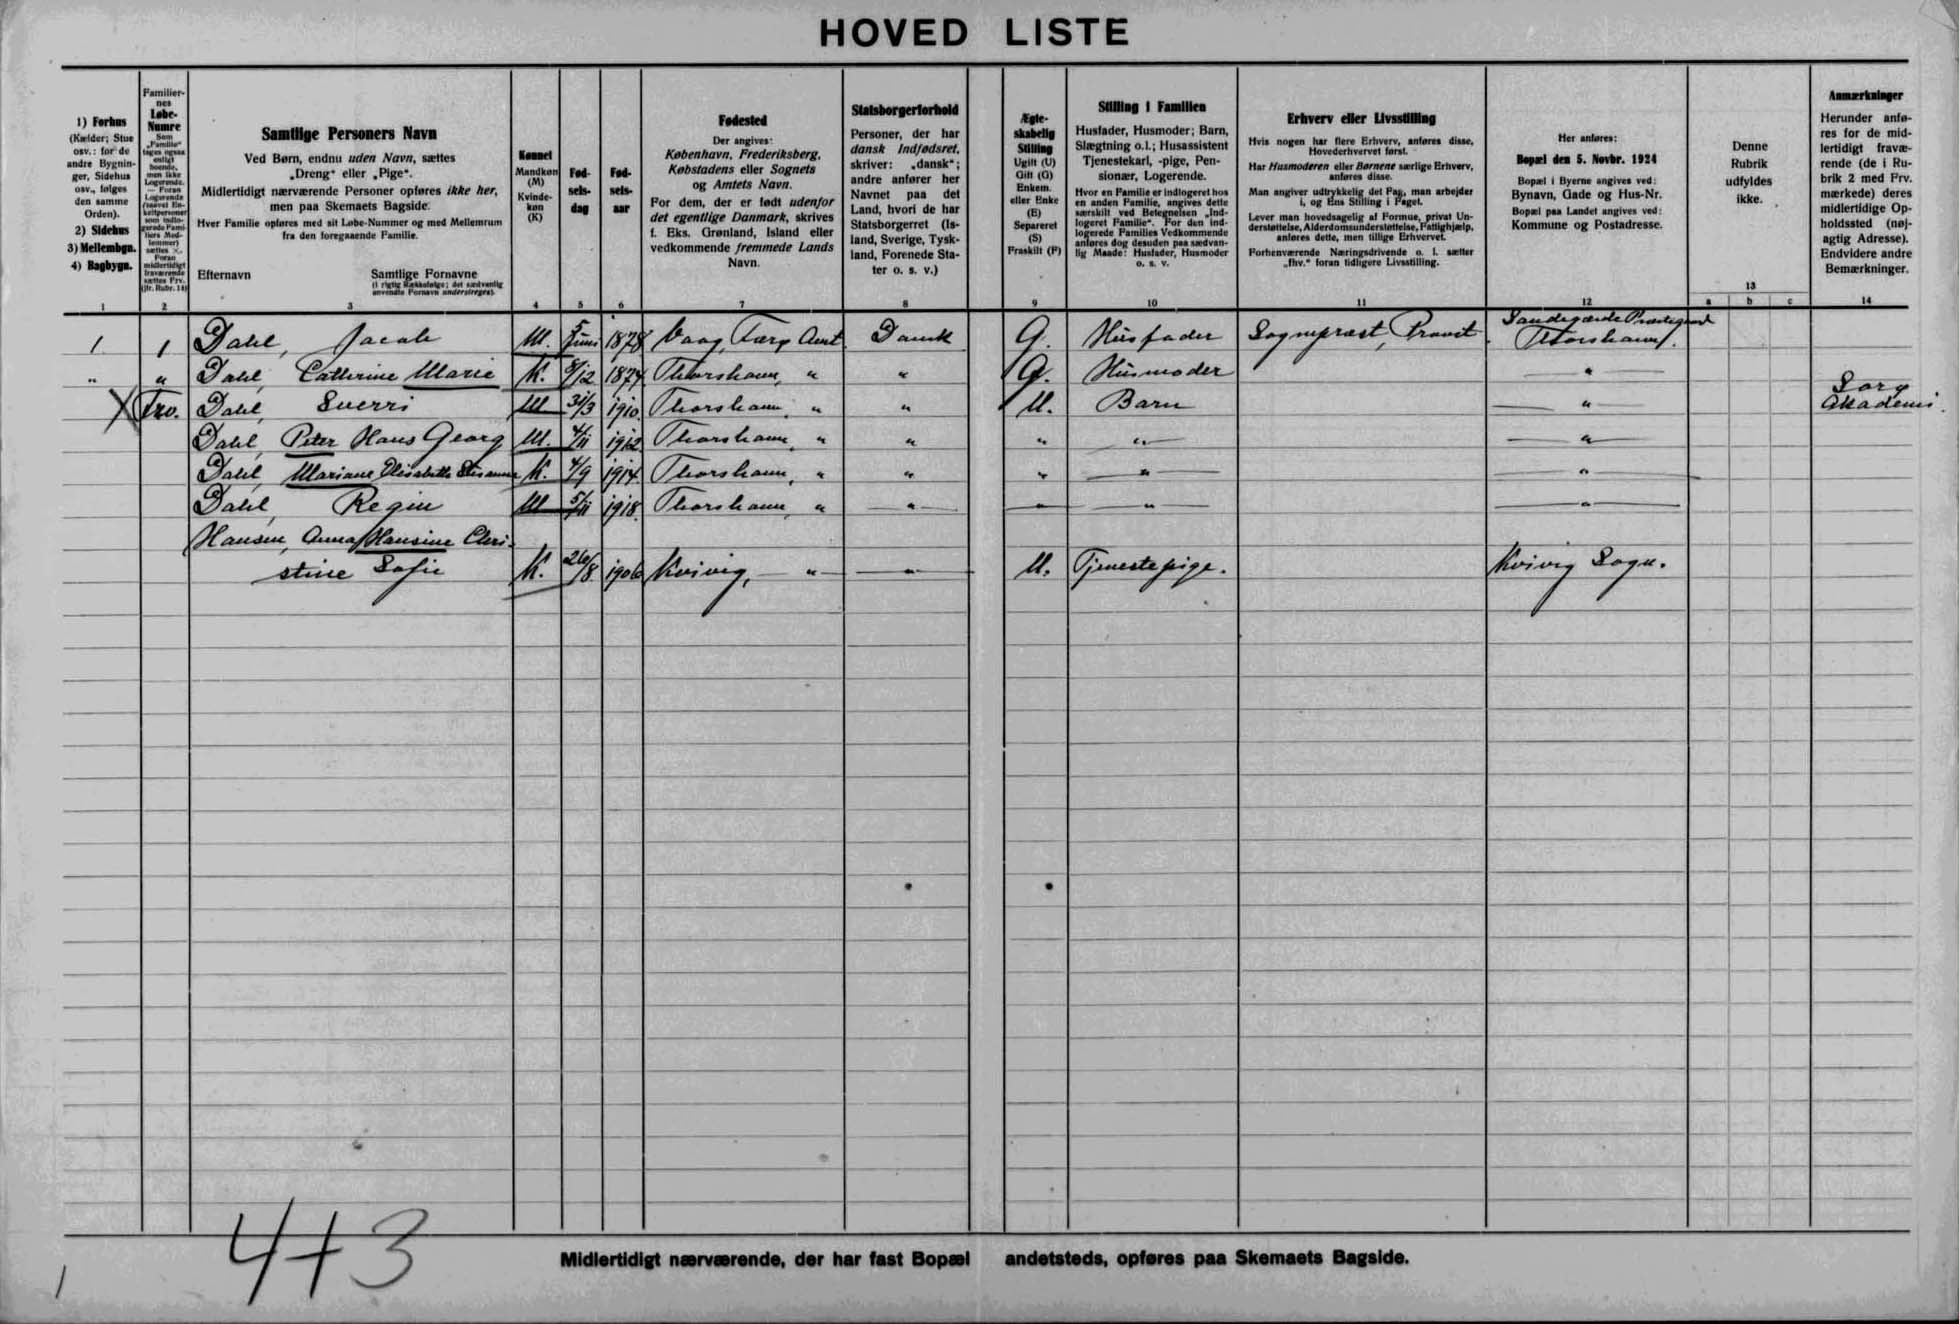 HOVED LISTE
1) Forhus
(Kælder; Stue
osv.: for de
andre Bygnin-
ger, Sidehus
osv., følges
den samme
Orden).
2) Sidehus
3) Mellembgn.
4) Bagbygn.
1
Familier-
nes
Løbe-
Numre
Som
„Familie“
tages ogsaa
enligt
boende,
men ikke
Logerende.
— Foran
Logerende
2
Samtlige Personers Navn
Ved Børn, endnu uden Navn, sættes
„Dreng“ eller „Pige“.
Midlertidigt nærværende Personer opføres ikke her,
men paa Skemaets Bagside.
Hver Familie opføres med sit Løbe-Nummer og med Mellemrum
fra den foregaaende Familie.
Efternavn Samtlige Fornavne
(i rigtig Rækkefølge; det sædvanlig
anvendte Fornavn understreges).
3
Kønnet
Mandkøn
(M)
Kvinde-
køn
(K)
4
Fød-
sels-
dag
5
Fød-
sels-
aar
6
Fødested
Der angives:
København, Frederiksberg,
Købstadens eller Sognets
og Amtets Navn.
For dem, der er født udenfor
det egentlige Danmark, skrives
f. Eks. Grønland, Island eller
vedkommende fremmede Lands
Navn.
7
Statsborgerforhold
Personer, der har
dansk Indfødsret,
skriver: „dansk“;
andre anfører her
Navnet paa det
Land, hvori de har
Statsborgerret (Is-
land, Sverige, Tysk-
land, Forenede Sta-
ter o. s. v.)
8
Ægte-
skabelig
Stilling
Ugift (U)
Gift (G)
Enkem.
eller Enke
(E)
Separeret
(S)
Fraskilt (F)
9
Stilling i Familien
Husfader, Husmoder; Barn,
Slægtning o.l.; Husassistent
Tjenestekarl, -pige, Pen-
sionær, Logerende.
Hvor en Familie er indlogeret hos
en anden Familie, angives dette
særskilt ved Betegnelsen „Ind-
logeret Familie“. For den ind-
logerede Families Vedkommende
anføres dog desuden paa sædvan-
lig Maade: Husfader, Husmoder
o. s. v.
10
Erhverv eller Livsstilling
Hvis nogen har flere Erhverv, anføres disse,
Hovederhvervet først.
Har Husmoderen eller Børnene særlige Erhverv,
anføres disse.
Man angiver udtrykkelig det Fag, man arbejder
i, og Ens Stilling i Faget.
Lever man hovedsagelig af Formue, privat Un-
derstøttelse, Alderdomsunderstøttelse, Fattighjælp,
anføres dette, men tillige Erhvervet.
Forhenværende Næringsdrivende o. l. sætter
„fhv.“ foran tidligere Livsstilling.
11
Her anføres:
Bopæl den 5. Novbr. 1924
Bopæl i Byerne angives ved:
Bynavn, Gade og Hus-Nr.
Bopæl paa Landet angives ved:
Kommune og Postadresse.
12
Denne
Rubrik
udfyldes
ikke.
13
a b c
Anmærkninger
Herunder anfø-
res for de mid-
lertidigt fravæ-
rende (de i Ru-
brik 2 med Frv.
mærkede) deres
midlertidige Op-
holdssted (nøj-
agtig Adresse).
Endvidere andre
Bemærkninger.
14
Sandegærde Præstegaard
1 1 Dahl, Jacob M. 5 Juni 1878 Vaag, Færø Amt Dansk G. Husfader Sognepræst, Provst. Thorshavn.
" " Dahl, Cathrine Marie K. 8/12 1874 Thorshavn, " " G. Husmoder "
X Frv. Dahl, Sverri M 31/3 1910. Thorshavn, " " U. Barn " Sorø
Akademi.
Dahl, Peter Hans Georg M. 4/11 1912 Thorshavn, " " " " "
Dahl, Mariane Elisabeth Susanne K. 4/9 1914. Thorshavn, " " " " "
Dahl, Regin M 5/11 1918. Thorshavn, " " " " "
Hansen, Anna Hansine Chri-
stine Sofie K. 26/8 1906 Kvivig, " " U. Tjenestepige. Kvivig Sogn.
4+3
1
Midlertidigt nærværende, der har fast Bopæl andetsteds, opføres paa Skemaets Bagside.